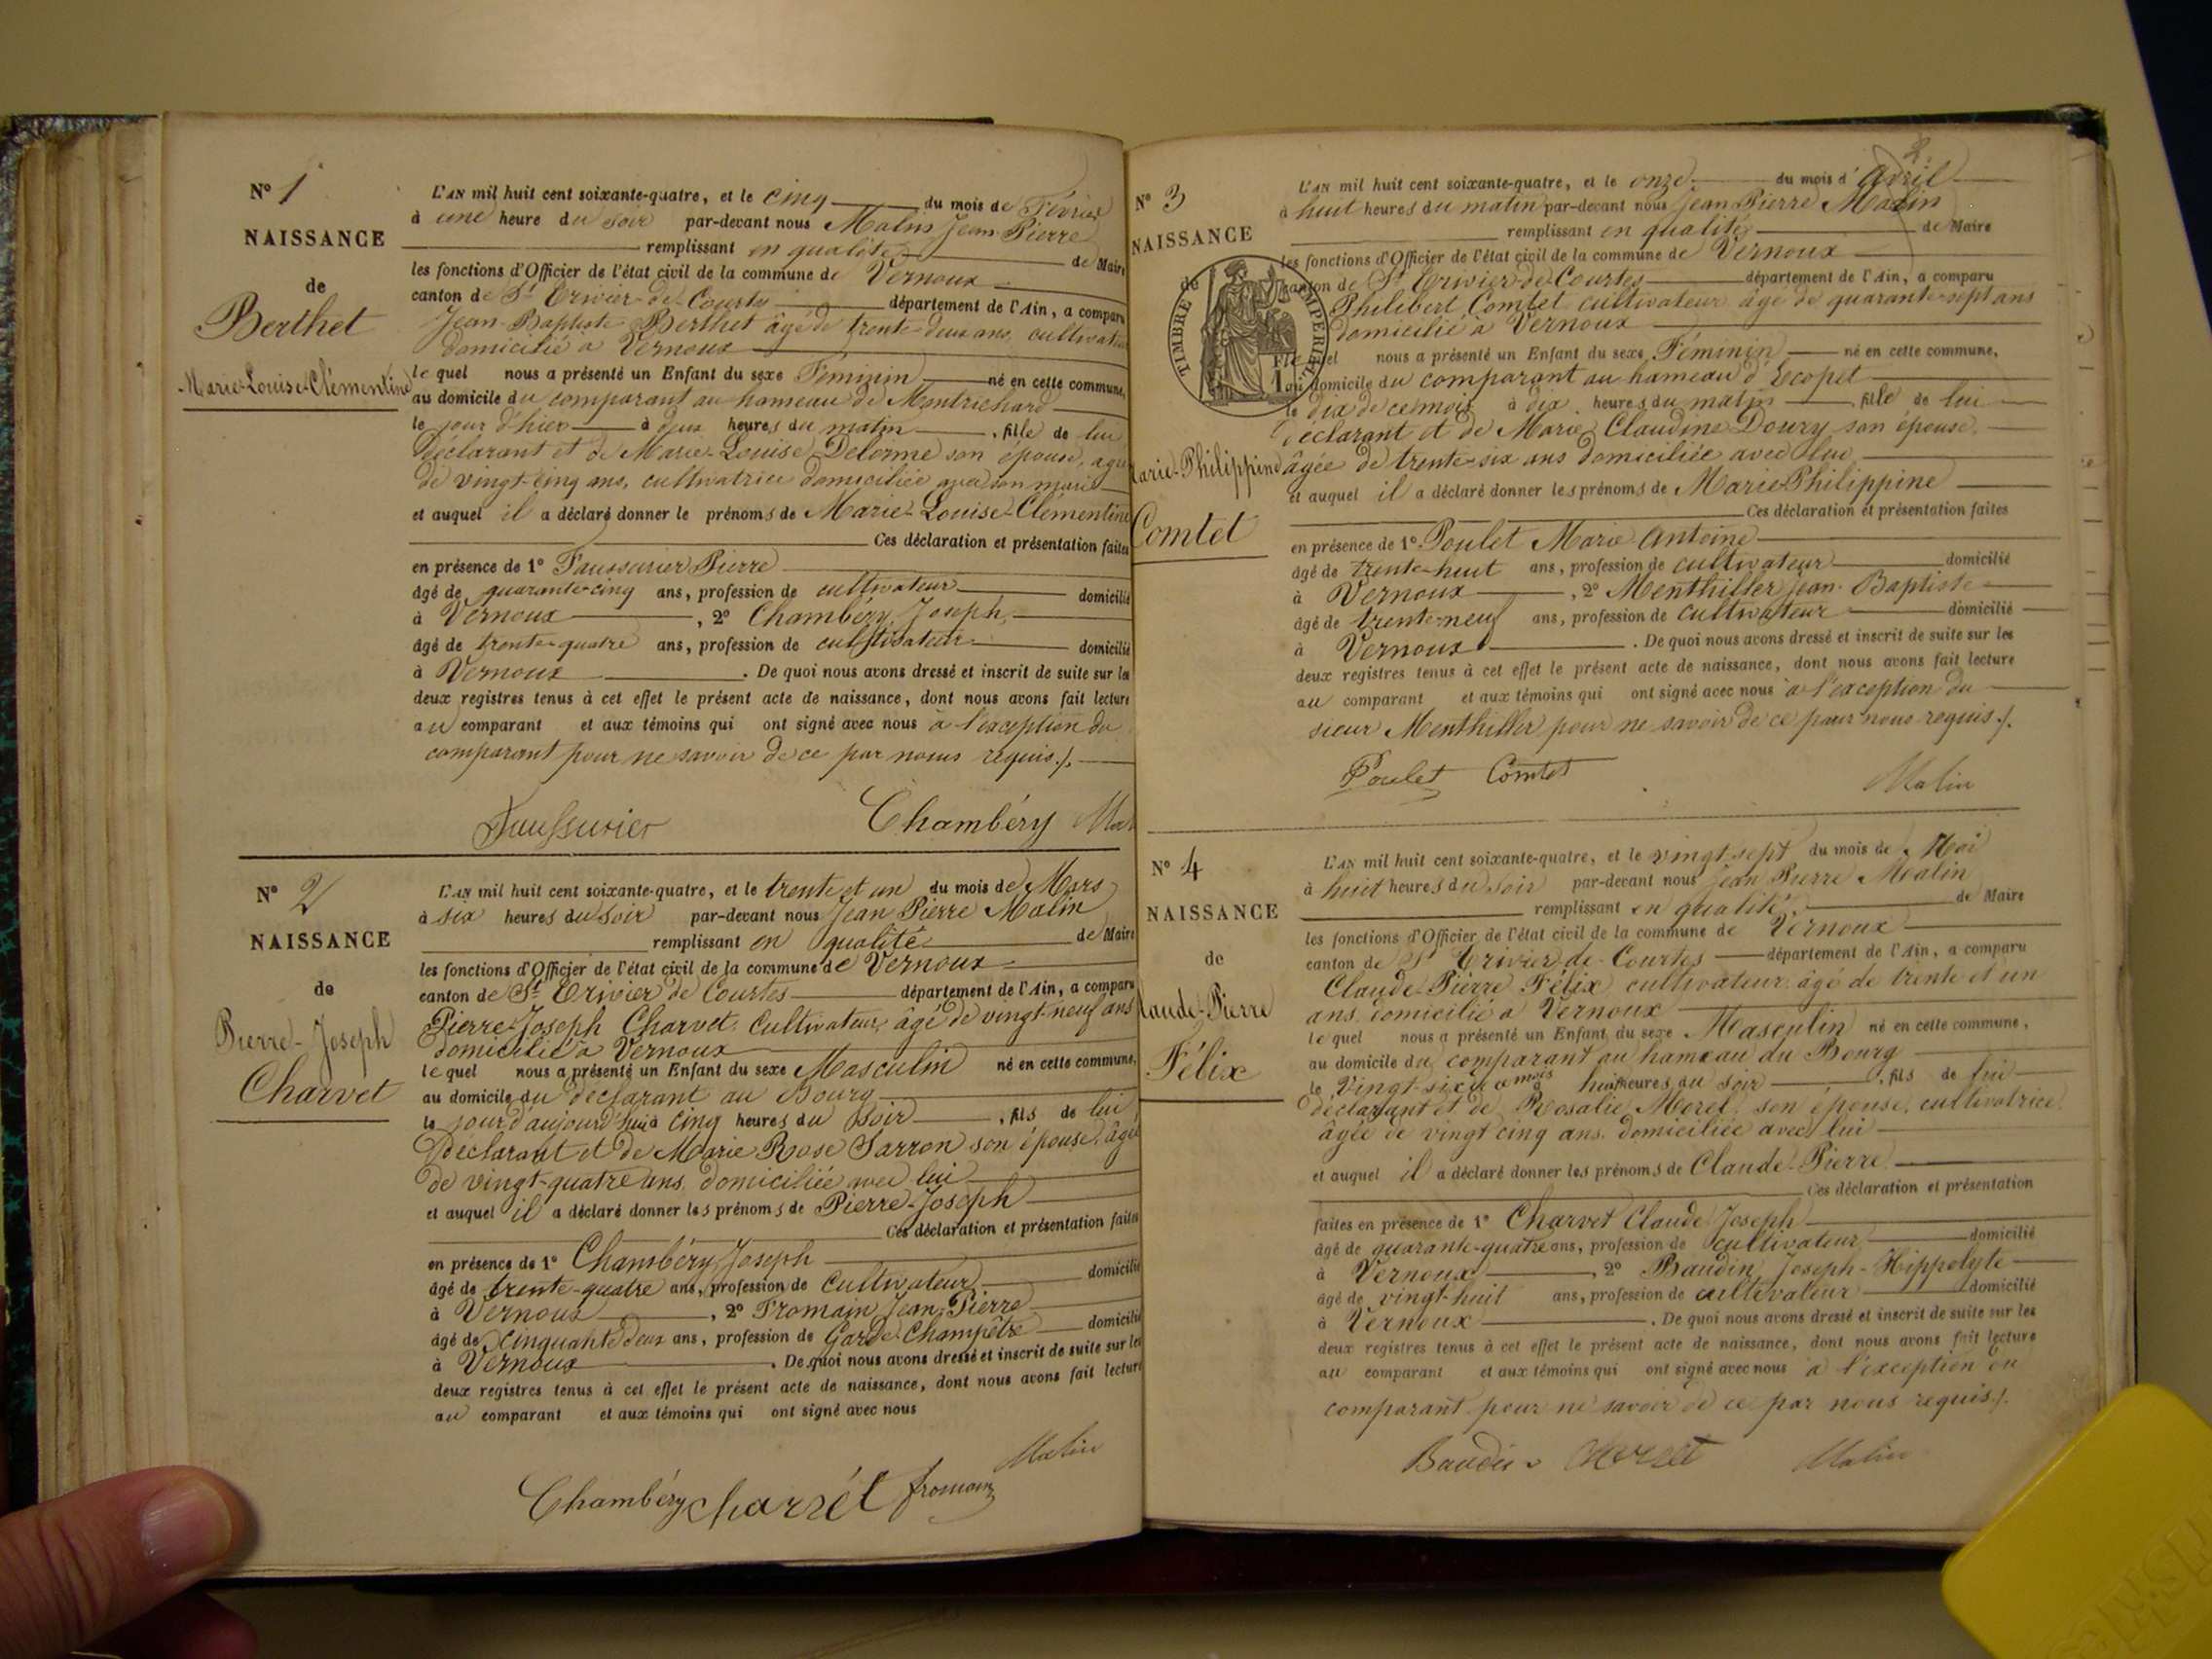 N° 1
NAISSANCE
de
Berthet
Marie-Louise-Clémentine
L'AN mil huit cent soixante-quatre, et le cinq du mois de Février
à une heure du soir par-devant nous Malin Jean Pierre
remplissant en qualité de Maire
les fonctions d'Officier de l'état civil de la commune de Vernoux
canton de St Trivier-de-Courtes département de l'Ain, a comparu
Jean-Baptiste Berthet âgé de trente-deux ans, cultivateur
domicilié à Vernoux
le quel nous a présenté un Enfant du sexe Féminin né en cette commune,
au domicile du comparant au hameau de Montrichard
le jour d'hier à deux heures du matin, fille de lui
déclarant et de Marie-Louise Delorme son épouse, agée
de vingt-cinq ans, cultivatrice domiciliée avec son mari
et auquel il a déclaré donner le prénoms de Marie-Louise-Clémentine
Ces déclaration et présentation faites
en présence de 1° Faussurier Pierre
âgé de quarante-cinq ans, profession de cultivateur domicilié
à Vernoux, 2° Chambéry Joseph
âgé de trente-quatre ans, profession de cultivateur domicilié
à Vernoux. De quoi nous avons dressé et inscrit de suite sur les
deux registres tenus à cet effet le présent acte de naissance, dont nous avons fait lecture
au comparant et aux témoins qui ont signé avec nous à l'exception du
comparant pour ne savoir de ce par nous requis./.
Faussurier Chambéry Mal
N° 2
NAISSANCE
de
Pierre-Joseph
Charvet
L'AN mil huit cent soixante-quatre, et le trente et un du mois de Mars
à six heures du soir par-devant nous Jean Pierre Malin
remplissant en qualité de Maire
les fonctions d'Officier de l'état civil de la commune de Vernoux
canton de St Trivier de Courtes département de l'Ain, a comparu
Pierre-Joseph Charvet, Cultivateur, âgé de vingt-neuf ans
domicilié à Vernoux
le quel nous a présenté un Enfant du sexe Masculin né en cette commune,
au domicile du déclarant au Bourg
le jour d'aujourd'hui à cinq heures du soir, fils de lui
Déclarant et de Marie Rose Sarron son épouse, âgée
de vingt-quatre ans, domiciliée avec lui
et auquel il a déclaré donner les prénoms de Pierre-Joseph
Ces déclaration et présentation faites
en présence de 1° Chambéry Joseph
âgé de trente-quatre ans, profession de Cultivateur domicilié
à Vernoux, 2° Fromain Jean-Pierre
âgé de cinquante deux ans, profession de Garde-Champêtre domicilié
à Vernoux. De quoi nous avons dressé et inscrit de suite sur les
deux registres tenus à cet effet le présent acte de naissance, dont nous avons fait lecture
au comparant et aux témoins qui ont signé avec nous
Malin
Chambéry charvét fromain
N° 3
NAISSANCE
de
TIMBRE IMPERIAL
Marie-Philippine
Comtet
L'AN mil huit cent soixante-quatre, et le onze du mois d'avril
à huit heures du matin par-devant nous Jean Pierre Malin
remplissant en qualité de Maire
les fonctions d'Officier de l'état civil de la commune de Vernoux
canton de St Trivier-de-Courtes département de l'Ain, a comparu
Philibert Comtet cultivateur âgé de quarante-sept ans
domicilié à Vernoux
le quel nous a présenté un Enfant du sexe Féminin né en cette commune,
au domicile du comparant au hameau d'Ecopet
le dix de ce mois à dix heures du matin, fille de lui
déclarant et de Marie Claudine Doury son épouse,
âgée de trente-six ans domiciliée avec lui
et auquel il a déclaré donner les prénoms de Marie-Philippine
Ces déclaration et présentation faites
en présence de 1° Poulet Marie Antoine
âgé de trente-huit ans, profession de cultivateur domicilié
à Vernoux, 2° Menthiller Jean-Baptiste
âgé de trente-neuf ans, profession de cultivateur domicilié
à Vernoux. De quoi nous avons dressé et inscrit de suite sur les
deux registres tenus à cet effet le présent acte de naissance, dont nous avons fait lecture
au comparant et aux témoins qui ont signé avec nous à l'exception du
sieur Menthiller pour ne savoir de ce par nous requis./.
Poulet Comtet Malin
N° 4
NAISSANCE
de
Claude-Pierre
Félix
L'AN mil huit cent soixante-quatre, et le vingt sept du mois de Mai
à huit heures du soir par-devant nous Jean Pierre Malin
remplissant en qualité de Maire
les fonctions d'Officier de l'état civil de la commune de Vernoux
canton de St Trivier-de-Courtes département de l'Ain, a comparu
Claude-Pierre Félix cultivateur âgé de trente et un
ans, domicilié à Vernoux
le quel nous a présenté un Enfant du sexe Masculin né en cette commune,
au domicile du comparant au hameau du Bourg
le Vingt-six de ce mois à huit heures du soir, fils de lui
déclarant et de Rosalie Morel, son épouse, cultivatrice,
âgée de vingt cinq ans, domiciliée avec lui
et auquel il a déclaré donner les prénoms de Claude-Pierre
Ces déclaration et présentation
faites en présence de 1° Charvet Claude Joseph
âgé de quarante-quatre ans, profession de cultivateur domicilié
à Vernoux, 2° Baudin Joseph-Hippolyte
âgé de vingt-huit ans, profession de cultivateur domicilié
à Vernoux. De quoi nous avons dressé et inscrit de suite sur les
deux registres tenus à cet effet le présent acte de naissance, dont nous avons fait lecture
au comparant et aux témoins qui ont signé avec nous à l'exception du
comparant pour ne savoir de ce par nous requis./.
Baudin Charvet Malin